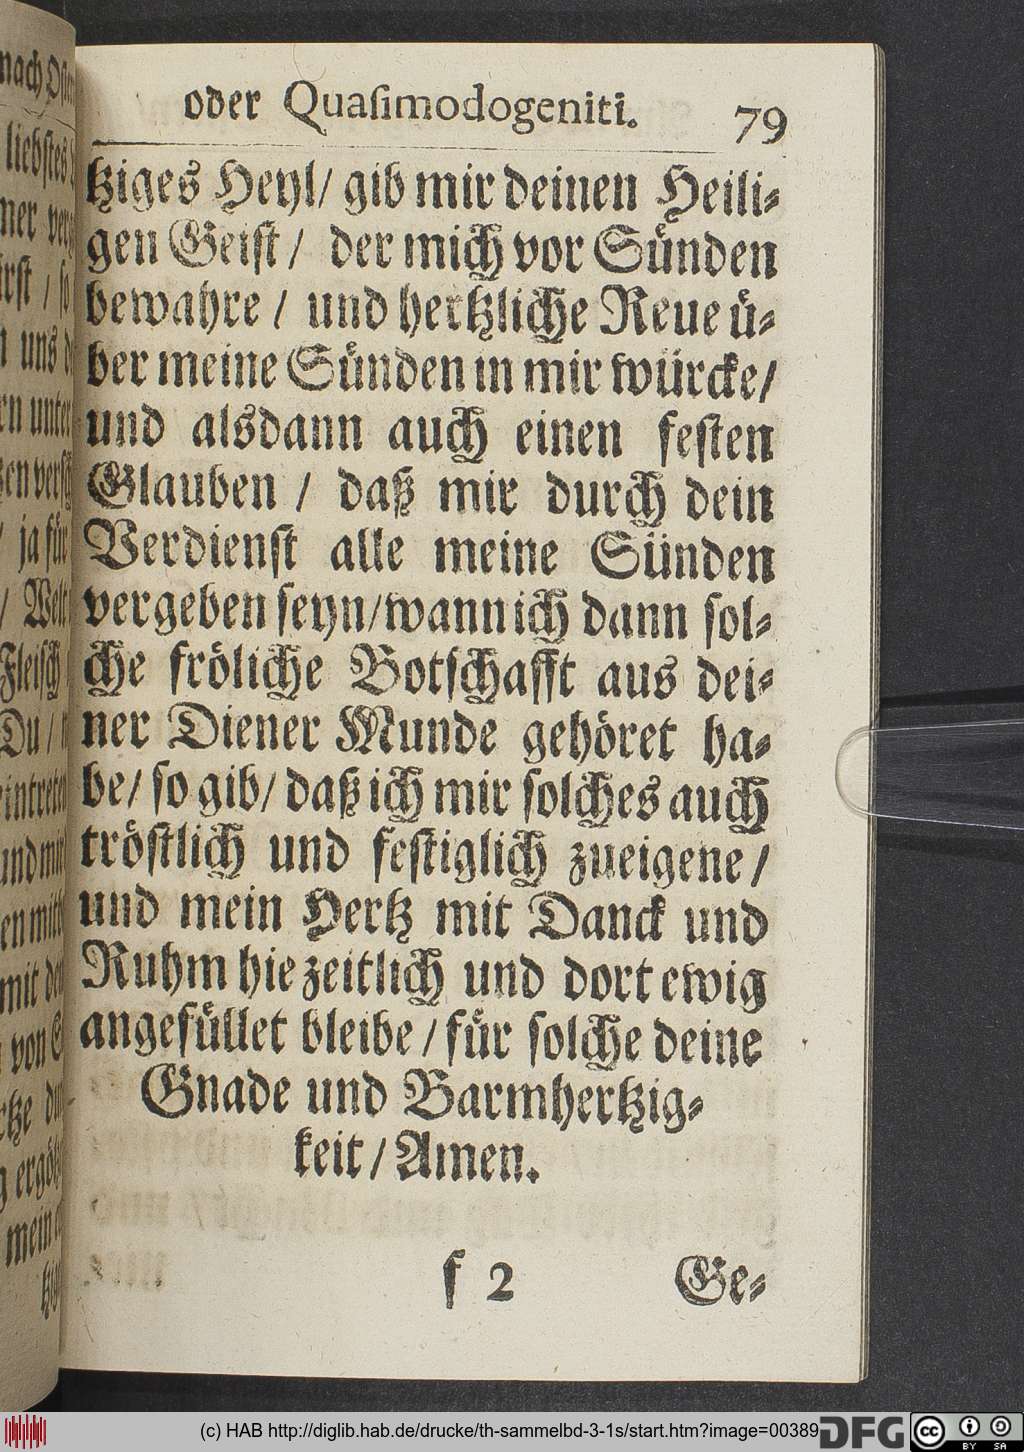 oder Quaſimodogeniti. 79
tziges Heyl/ gib mir deinen Heili-
gen Geiſt/ der mich vor Sünden
bewahre/ und hertzliche Reue ü-
ber meine Sünden in mir würcke/
und alsdann auch einen feſten
Glauben/ daß mir durch dein
Verdienſt alle meine Sünden
vergeben ſeyn/wann ich dann ſol-
che fröliche Botſchafft aus dei-
ner Diener Munde gehöret ha-
be/ ſo gib/ daß ich mir ſolches auch
tröſtlich und feſtiglich zueigene/
und mein Hertz mit Danck und
Ruhm hie zeitlich und dort ewig
angefüllet bleibe/ für ſolche deine
Gnade und Barmhertzig-
keit/ Amen.
f 2 Ge-
nach
liebſtes
ner
uns
unter
ja für
Welt
Fleiſch
Du/
mit
von
mein
(c) HAB http://diglib.hab.de/drucke/th-sammelbd-3-1s/start.htm?image=00389
DFG
cc BY SA